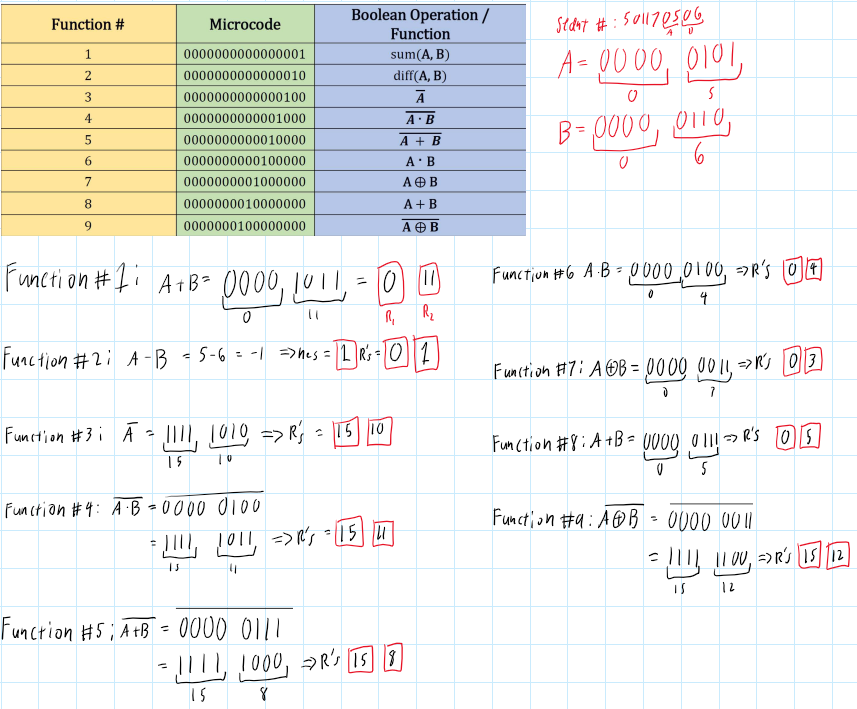 Function # Microcode Boolean Operation / Function
1 0000000000000001 sum(A, B)
2 0000000000000010 diff(A, B)
3 0000000000000100 A̅
4 0000000000001000 \overline{A · B}
5 0000000000010000 \overline{A + B}
6 0000000000100000 A · B
7 0000000001000000 A ⊕ B
8 0000000010000000 A + B
9 0000000100000000 \overline{A ⊕ B}
Stdnt #: 501170506
A B
A = 0000 0101
0 5
B = 0000 0110
0 6
Function #1: A+B = 0000 1011 = 0 11
0 11 R1 R2
Function #2: A - B = 5-6 = -1 => neg = 1 R's = 0 1
Function #3: A̅ = 1111 1010 => R's = 15 10
15 10
Function #4: \overline{A·B} = \overline{0000 0100}
= 1111 1011 => R's = 15 11
15 11
Function #5: \overline{A+B} = \overline{0000 0111}
= 1111 1000 => R's 15 8
15 8
Function #6 A·B = 0000 0100 => R's 0 4
0 4
Function #7: A⊕B = 0000 0011 => R's 0 3
0 3
Function #8: A+B = 0000 0111 => R's 0 5
0 5
Function #9: \overline{A⊕B} = \overline{0000 0011}
= 1111 1100 => R's 15 12
15 12